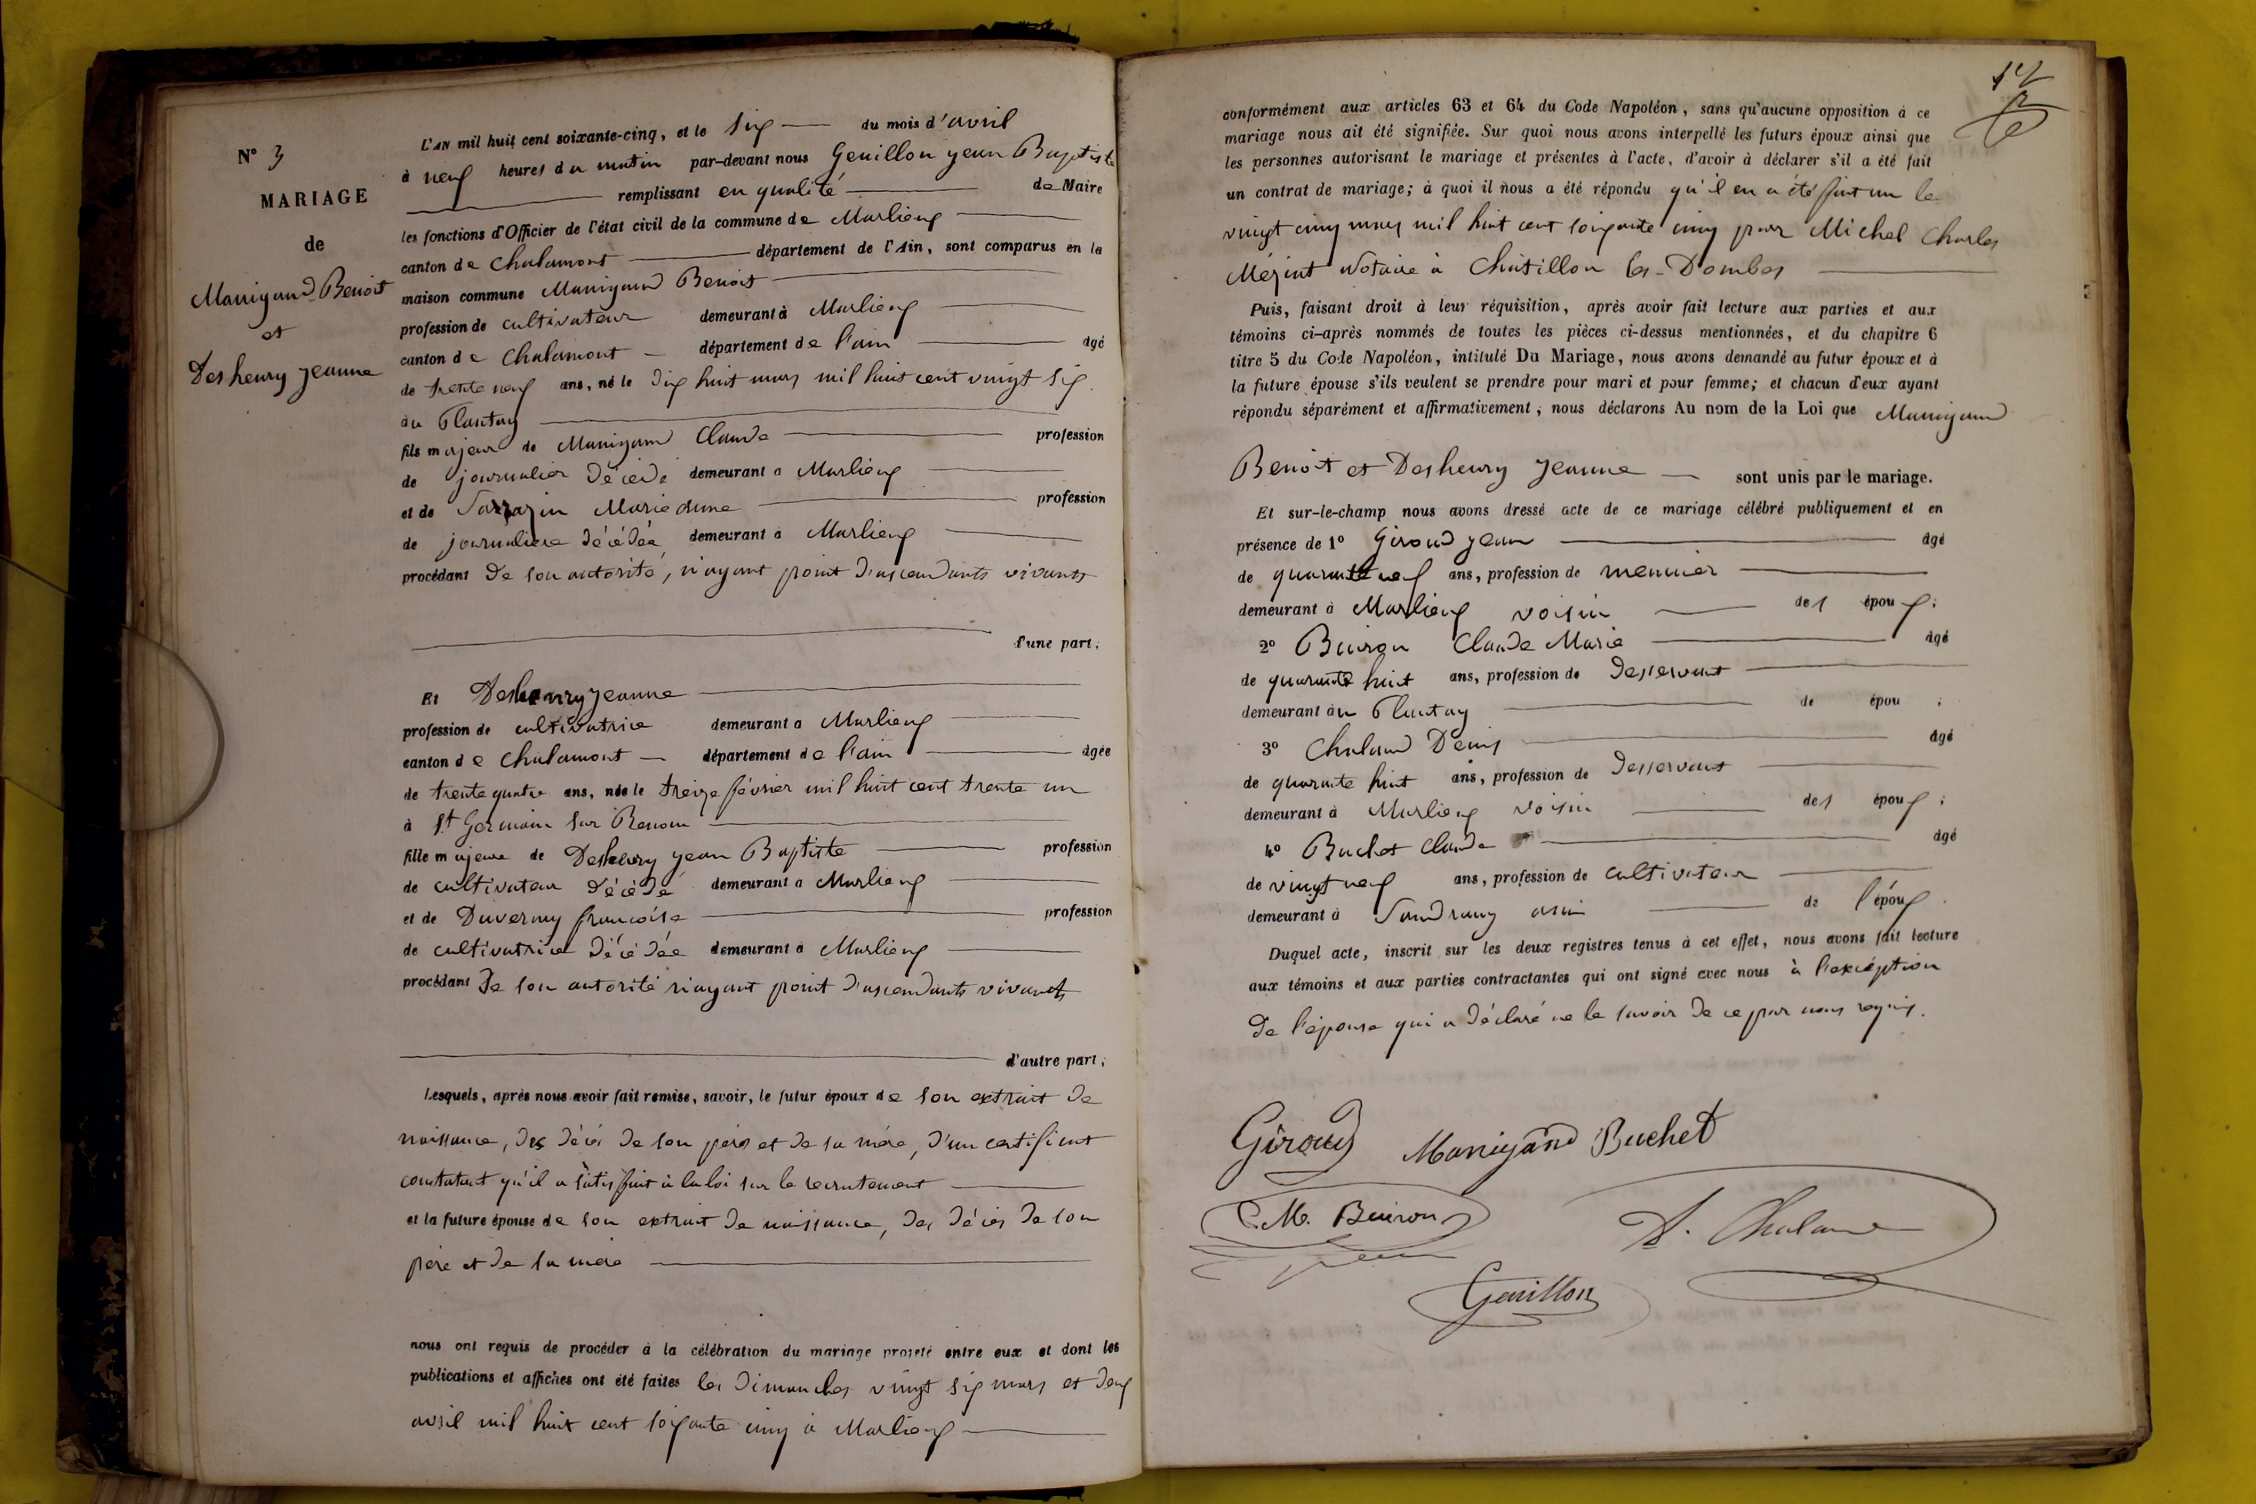 N° 3
MARIAGE
de
Manigand Benoit
et
Desheury Jeanne
L'AN mil huit cent soixante-cinq, et le six du mois d'avril
à neuf heures du matin par-devant nous Genillon jean Baptiste
remplissant en qualité de Maire
les fonctions d'Officier de l'état civil de la commune de Marlieux
canton de Chalamont département de l'Ain, sont comparus en la
maison commune Manigand Benoit
profession de cultivateur demeurant à Marlieux
canton de Chalamont département de l'ain âgé
de trente neuf ans, né le dix huit mars mil huit cent vingt six
au Plantay
fils majeur de Manigand Claude profession
de journalier décédé demeurant a Marlieux
et de Sarrazin Marie profession
de journaliere décédée demeurant à Marlieux
procédant de son autorité, n'ayant point d'ascendants vivants
d'une part;
Et Desheury jeanne
profession de cultivatrice demeurant a Marlieux
canton de Chalamont département de l'ain âgée
de trente quatre ans, née le treize février mil huit cent trente un
à St Germain sur Renom
fille majeure de Desheury jean Baptiste profession
de cultivateur décédé demeurant a Marlieux
et de Duvernay françoise profession
de cultivatrice décédée demeurant à Marlieux
procédant de son autorité n'ayant point d'ascendants vivants
d'autre part;
Lesquels, après nous avoir fait remise, savoir, le futur époux de son extrait de
naissance, des décés de son père et de sa mére, d'un certificat
constatant qu'il a satisfait à la loi sur le recrutement
et la future épouse de son extrait de naissance, des décés de son
père et de sa mére
nous ont requis de procéder à la célébration du mariage projeté entre eux et dont les
publications et affiches ont été faites les dimanches vingt six mars et deux
avril mil huit cent soixante cinq à Marlieux
conformément aux articles 63 et 64 du Code Napoléon, sans qu'aucune opposition à ce
mariage nous ait été signifiée. Sur quoi nous avons interpellé les futurs époux ainsi que
les personnes autorisant le mariage et présentes à l'acte, d'avoir à déclarer s'il a été fait
un contrat de mariage; à quoi il nous a été répondu qu'il en a été fait un le
vingt cinq mars mil huit cent soixante cinq par Michel Charles
Notaire à Chatillon les Dombes
Puis, faisant droit à leur réquisition, après avoir fait lecture aux parties et aux
témoins ci-après nommés de toutes les pièces ci-dessus mentionnées, et du chapitre 6
titre 5 du Code Napoléon, intitulé Du Mariage, nous avons demandé au futur époux et à
la future épouse s'ils veulent se prendre pour mari et pour femme; et chacun d'eux ayant
répondu séparément et affirmativement, nous déclarons Au nom de la Loi que Manigand
Benoit et Desheury Jeanne sont unis par le mariage.
Et sur-le-champ nous avons dressé acte de ce mariage célébré publiquement et en
présence de 1° Giroud jean âgé
de quarante neuf ans, profession de meunier
demeurant à Marlieux voisin des époux;
2° Buiron Claude Marie âgé
de quarante huit ans, profession de desservant
demeurant au Plantay de épou ;
3° Chaland Denis âgé
de quarante huit ans, profession de desservant
demeurant à Marlieux voisin des époux;
4° Buchet Claude âgé
de vingt neuf ans, profession de cultivateur
demeurant à Sandrans ami de l'époux
Duquel acte, inscrit sur les deux registres tenus à cet effet, nous avons fait lecture
aux témoins et aux parties contractantes qui ont signé avec nous à l'exception
de l'épouse qui a déclaré ne le savoir de ce par nous requis.
Giroud Manigand Buchet
C. M. Buiron D. Chaland
Genillon